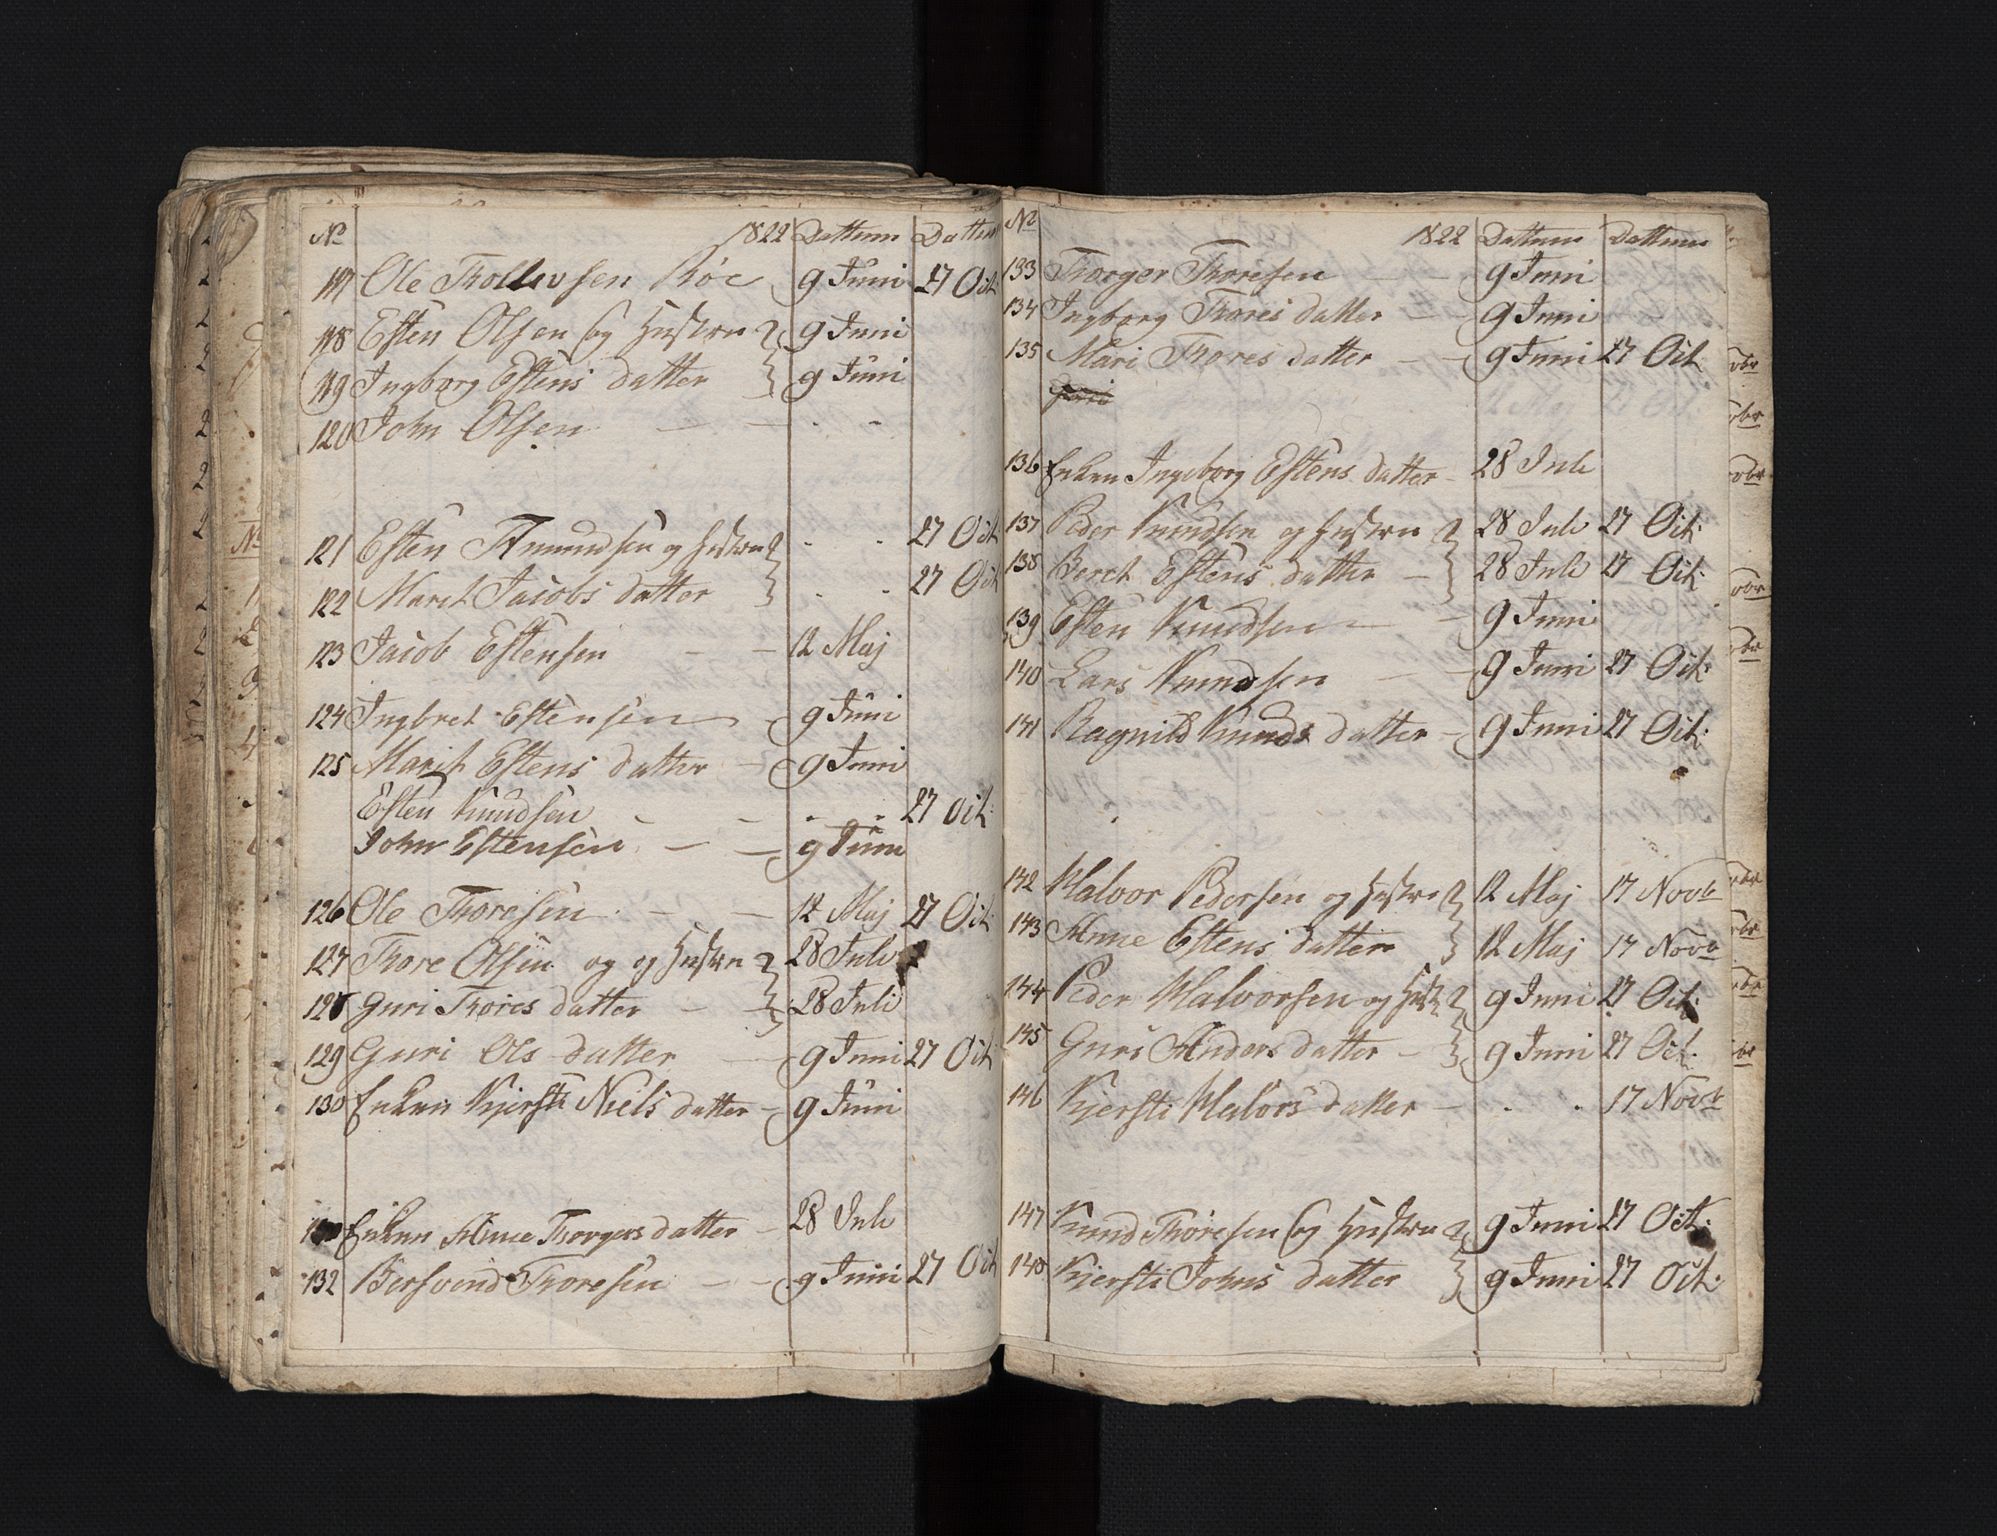 No 1822 Dattum Dattum
117 Ole Tollevsen Røe 9 Juni 27 Oct:
118 Esten Olsen og Hustru 9 Juni
119 Ingborg Estens datter 9 Juni
120 John Olsen - - . -
121 Esten Amundsen og Hustru . . 27 Oct
122 Maret Jacobs datter . . 27 Oct
123 Jacob Estensen - - 12 Maj
124 Ingbret Estensen - 9 Juni
125 Marit Estens datter - 9 Juni
Esten Knudsen - - . . 27 Oct:
John Estensen - - 9 Juni
126 Ole Thoresen - - 12 Maj 27 Oct:
127 Thore Olsen og og Hustru 28 Juli
128 Guri Thores datter - - 28 Juli
129 Guri Ols datter - 9 Juni 27 Oct:
130 Enken Kjersti Niels datter - 9 Juni
Enken Anne Thorgers datter - 28 Juli
132 Bersvend Thoresen - - 9 Juni 27 Oct
No 1822 Dattum Dattum
133 Thorger Thoresen - - 9 Juni
134 Ingborg Thores datter - - 9 Juni
135 Mari Thores datter - - 9 Juni 27 Oct
136 Enken Ingeborg Estens datter - 28 Juli
137 Peder Knudsen og Hustru 28 Juli 27 Oct:
138 Beret Estens datter - 28 Juli 27 Oct:
139 Esten Knudsen - - 9 Juni
140 Lars Knudsen - - 9 Juni 27 Oct:
141 Ragnild Knuds datter - 9 Juni 27 Oct:
142 Halvor Pedersen og Hustru 12 Maj 17 Novb
143 Anne Estens datter 12 Maj 17 Novb
144 Peder Halvorsen og Hust 9 Juni 27 Oct:
145 Guri Anders datter - 9 Juni 27 Oct.
146 Kjersti Halvors datter - . . 17 Novb
147 Knud Thoresen og Hustru 9 Juni 27 Oct:
148 Kjersti Johns datter 9 Juni 27 Oct: